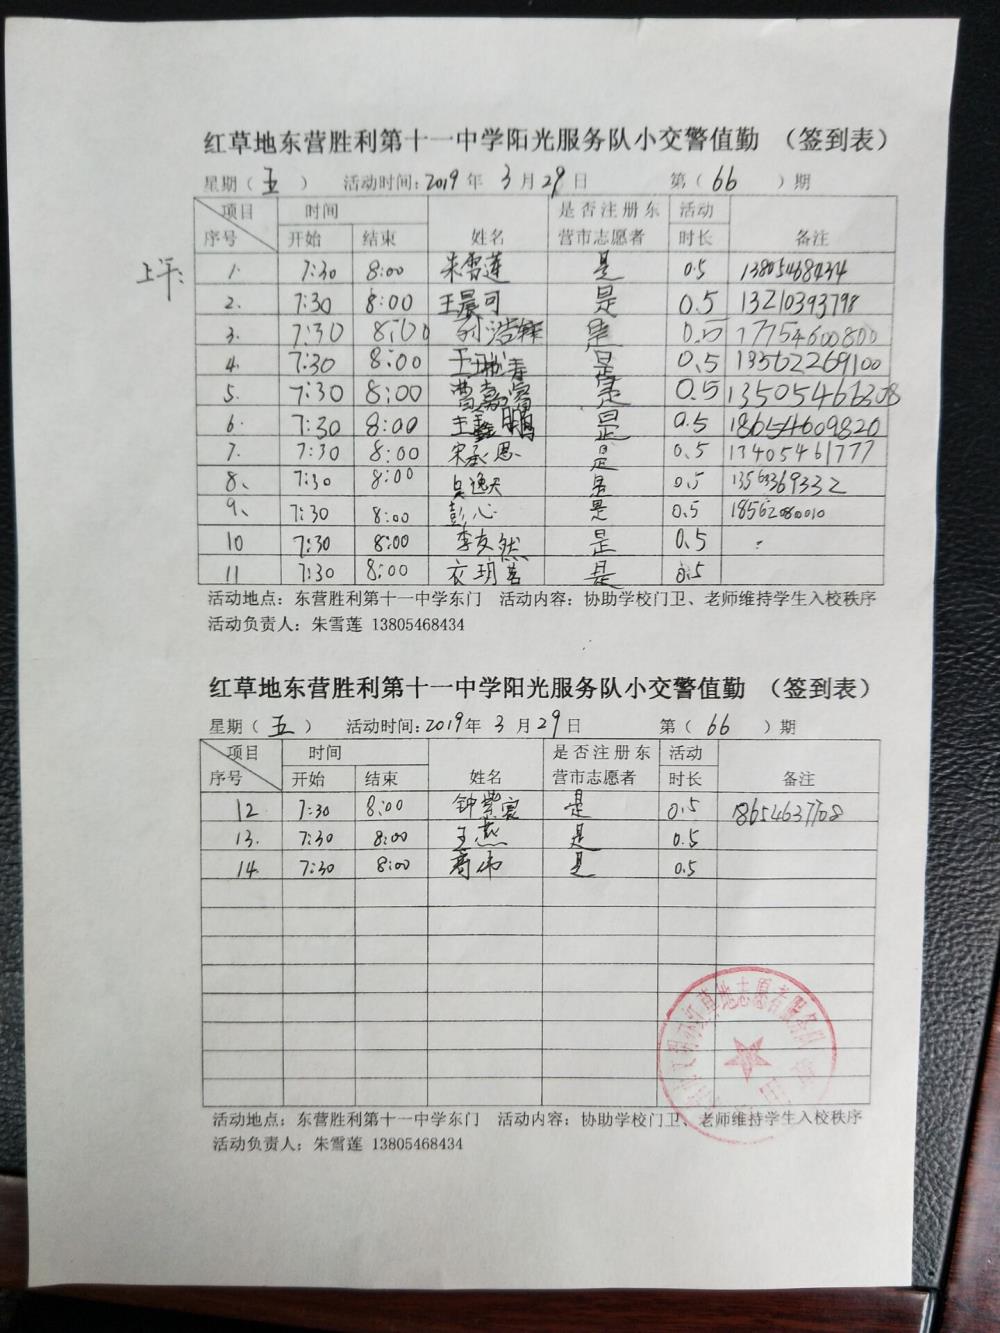 红草地东营胜利第十一中学阳光服务队小交警值勤 （签到表）
星期（ 五 ） 活动时间: 2019 年 3 月 29 日 第（ 66 ）期
项目 时间 是否注册东 活动
序号 开始 结束 姓名 营市志愿者 时长 备注
上午:
1. 7:30 8:00 朱雪莲 是 0.5 13805468434
2. 7:30 8:00 王晨可 是 0.5 13210393798
3. 7:30 8:00 孙浩 是 0.5 17754600800
4. 7:30 8:00 是 0.5 13562269100
5. 7:30 8:00 曹嘉 是 0.5 13505466308
6. 7:30 8:00 王鑫鹏 是 0.5 18654609820
7. 7:30 8:00 宋承恩 是 0.5 13405461777
8、 7:30 8:00 吴逸天 是 0.5 13563369332
9、 7:30 8:00 彭心 是 0.5 18562080010
10 7:30 8:00 李友然 是 0.5
11 7:30 8:00 衣玥茗 是 0.5
活动地点：东营胜利第十一中学东门 活动内容：协助学校门卫、老师维持学生入校秩序
活动负责人：朱雪莲 13805468434
红草地东营胜利第十一中学阳光服务队小交警值勤 （签到表）
星期（ 五 ） 活动时间: 2019 年 3 月 29 日 第（ 66 ）期
项目 时间 是否注册东 活动
序号 开始 结束 姓名 营市志愿者 时长 备注
12 7:30 8:00 钟紫宸 是 0.5 18654637708
13. 7:30 8:00 王燕 是 0.5
14. 7:30 8:00 是 0.5
草地志愿者服务队
活动地点：东营胜利第十一中学东门 活动内容：协助学校门卫、老师维持学生入校秩序
活动负责人：朱雪莲 13805468434